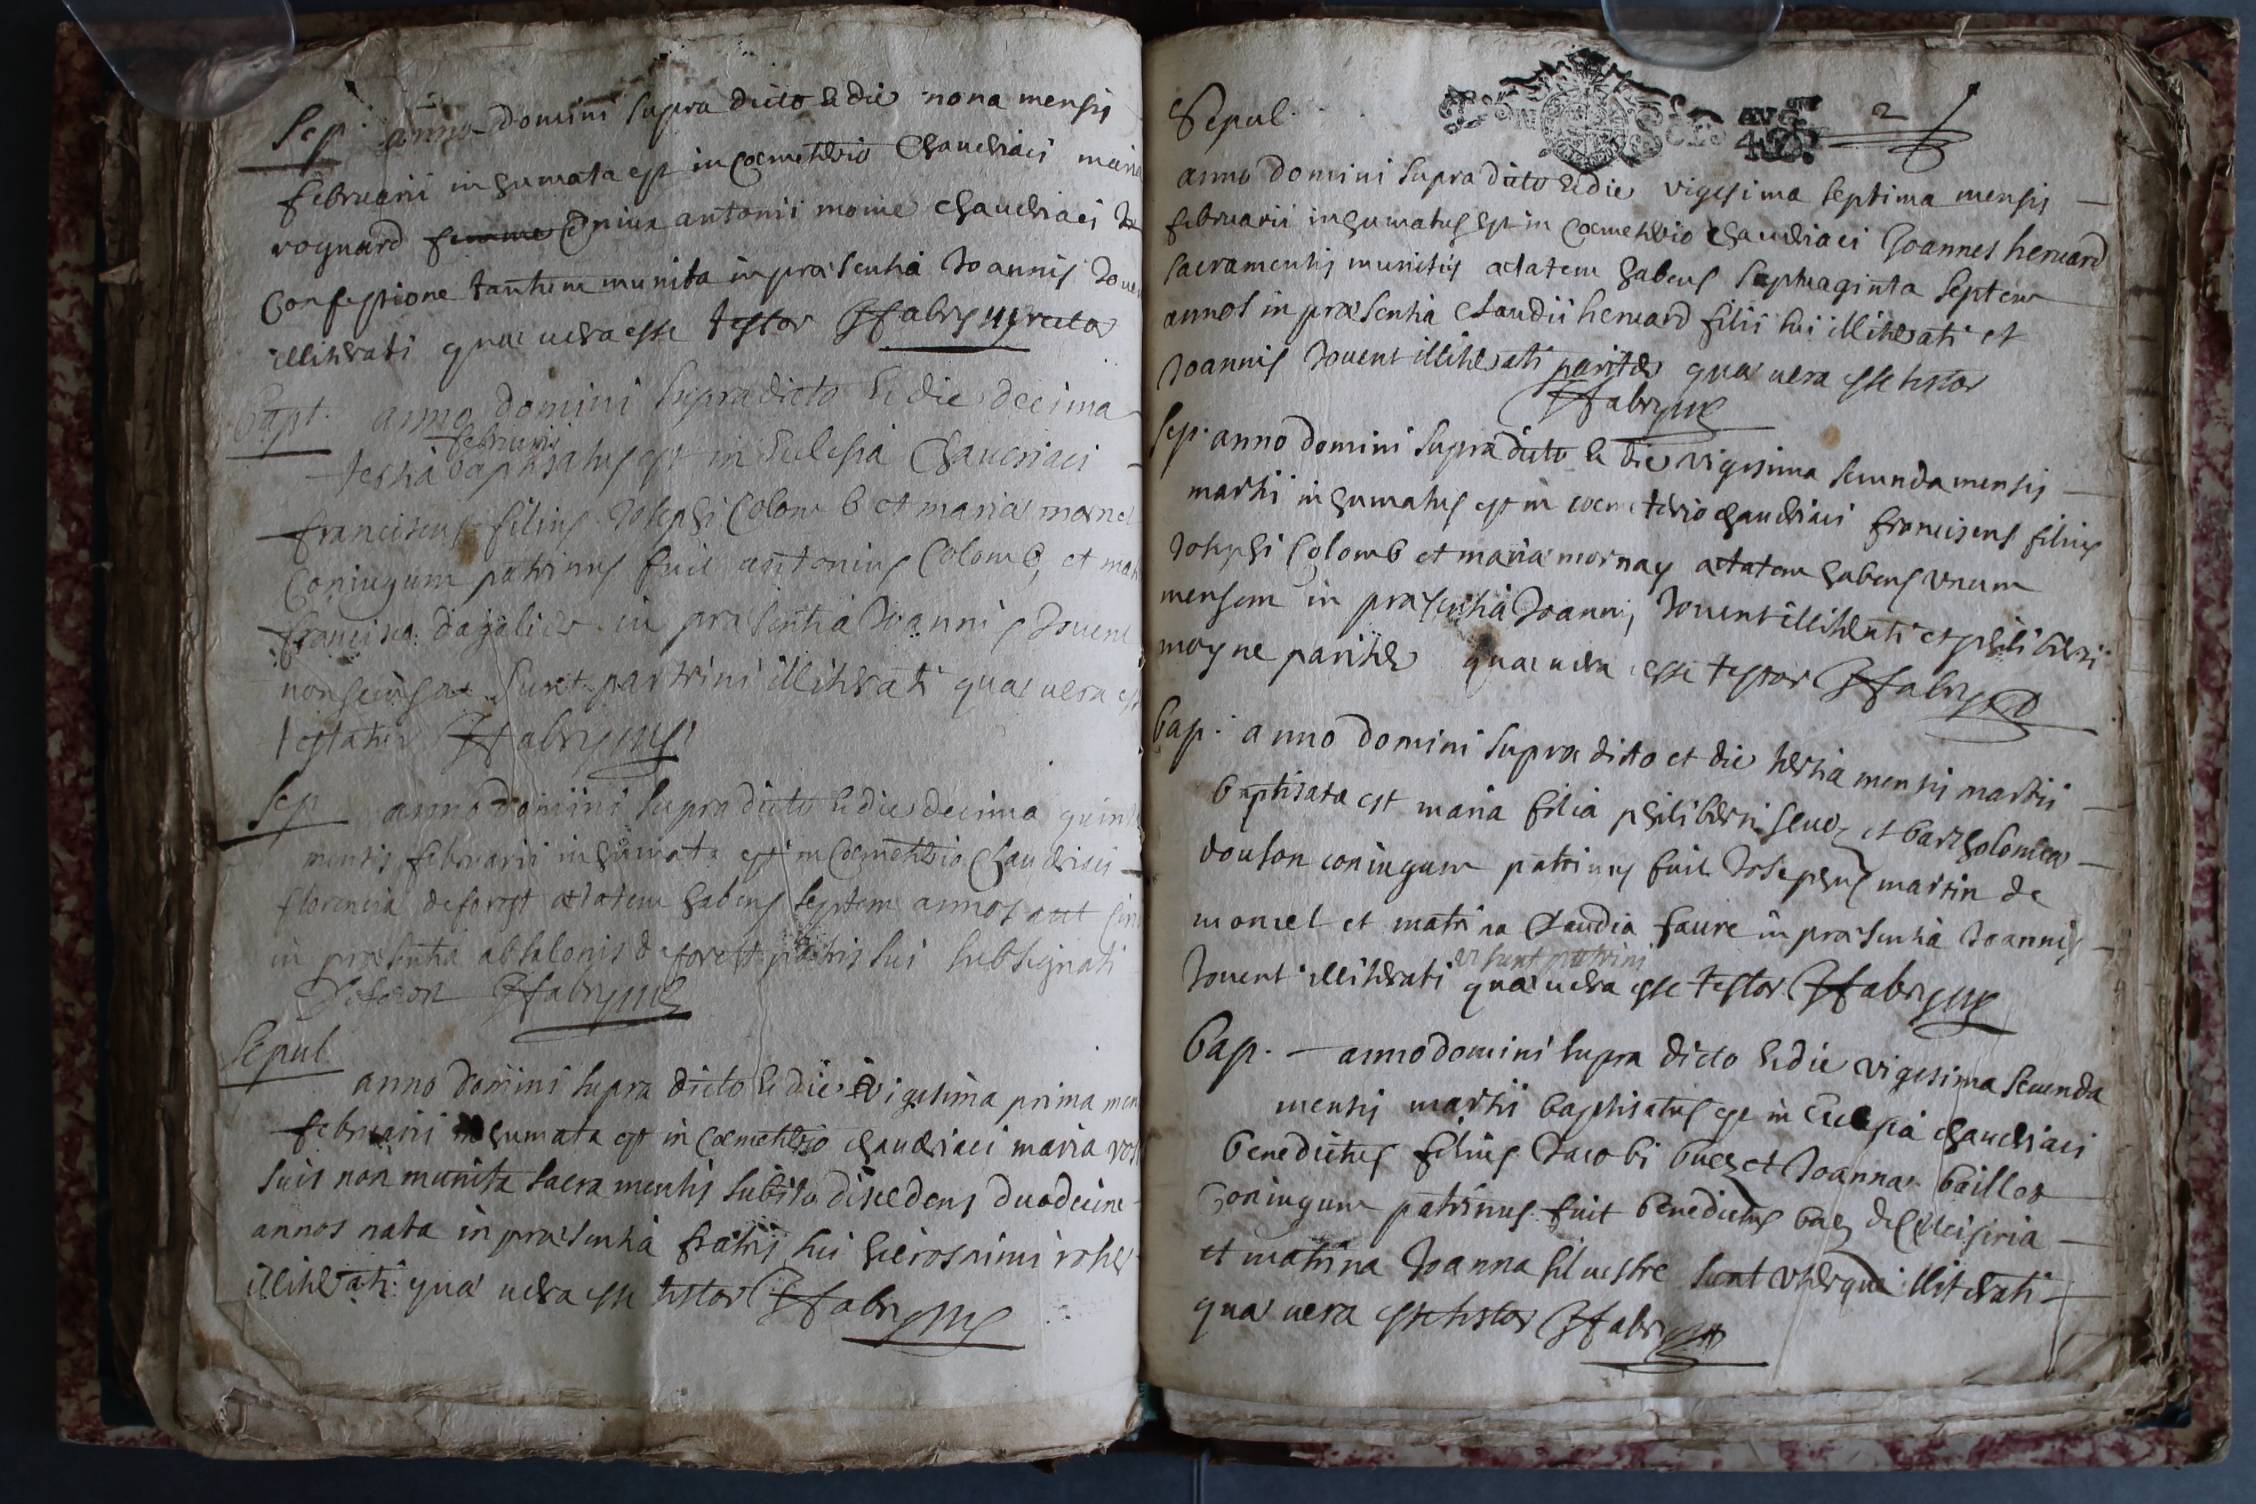 Sep. anno domini supra dicto & die nona mensis
februarii inhumata est in coemeterio Chaudriaci maria
rognard femme coniux antonii moine Chaudriaci
Confessione tantum munita in praesentia Joannis Jouen
illitterati quae uera esse testor ffabry
Bapt. anno domini supradicto & die decima
februarii
tertia baptisatus est in Ecclesia Chaudriaci
franciscus filius Josephi Colomb et mariae morne
Coniugum patrinus fuit antonius Colomb, et mat
francisca dagalier in praesentia Joannis Jouent
sunt patrini illitterati quae uera est
testatur ffabry
Sep anno domini supra dicto & die decima quinta
mensis februarii inhumata est in Coemeterio Chaudriaci
florencia deforest aetatem habens septem annos aut
in praesentia absalonis deforest patris sui subsignati
ffabry
Sepul
anno domini supra dicto & die vigesima prima men
februarii inhumata est in Coemeterio chaudriaci maria
suis non munita sacramentis subito discedens duodecim
annos nata in praesentia fratris sui hieronimi
illitterati quae uera esse testor ffabry
Sepul. 2
anno domini supra dicto & die vigesima septima mensis
februarii inhumatus est in Coemeterio chaudriaci Joannes heruard
sacramentis munitus aetatem habens septuaginta septem
annos in praesentia Claudii heruard filii sui illitterati et
Joannis Jouent illitterati pariter quae uera esse testor
ffabry
Sep. anno domini supra dicto & die vigesima secunda mensis
martii inhumatus est in coemeterio chaudriaci franciscus filius
Josephi Colomb et maria mornay aetatem habens unum
mensem in praesentia Joannis Jouent illitterati et philiberti
moyne pariter quae uera esse testor ffabry
Bap. anno domini supra dicto et die tertia mensis martii
baptisata est maria filia philiberti et bartholomea
douson coniugum patrinus fuit Josephus martin de
moncel et matrina Claudia faure in praesentia Joannis
ut sunt patrini
Jouent illitterati quae uera esse testor ffabry
Bap. anno domini supra dicto & die vigesima secunda
mensis martii baptisatus est in Ecclesia chaudriaci
benedictus filius Jacobi buez et Joannae baillot
Coniugum patrinus fuit benedictus buez
et matrina Joanna siluestre sunt uterque illitterati
quae uera esse testor ffabry